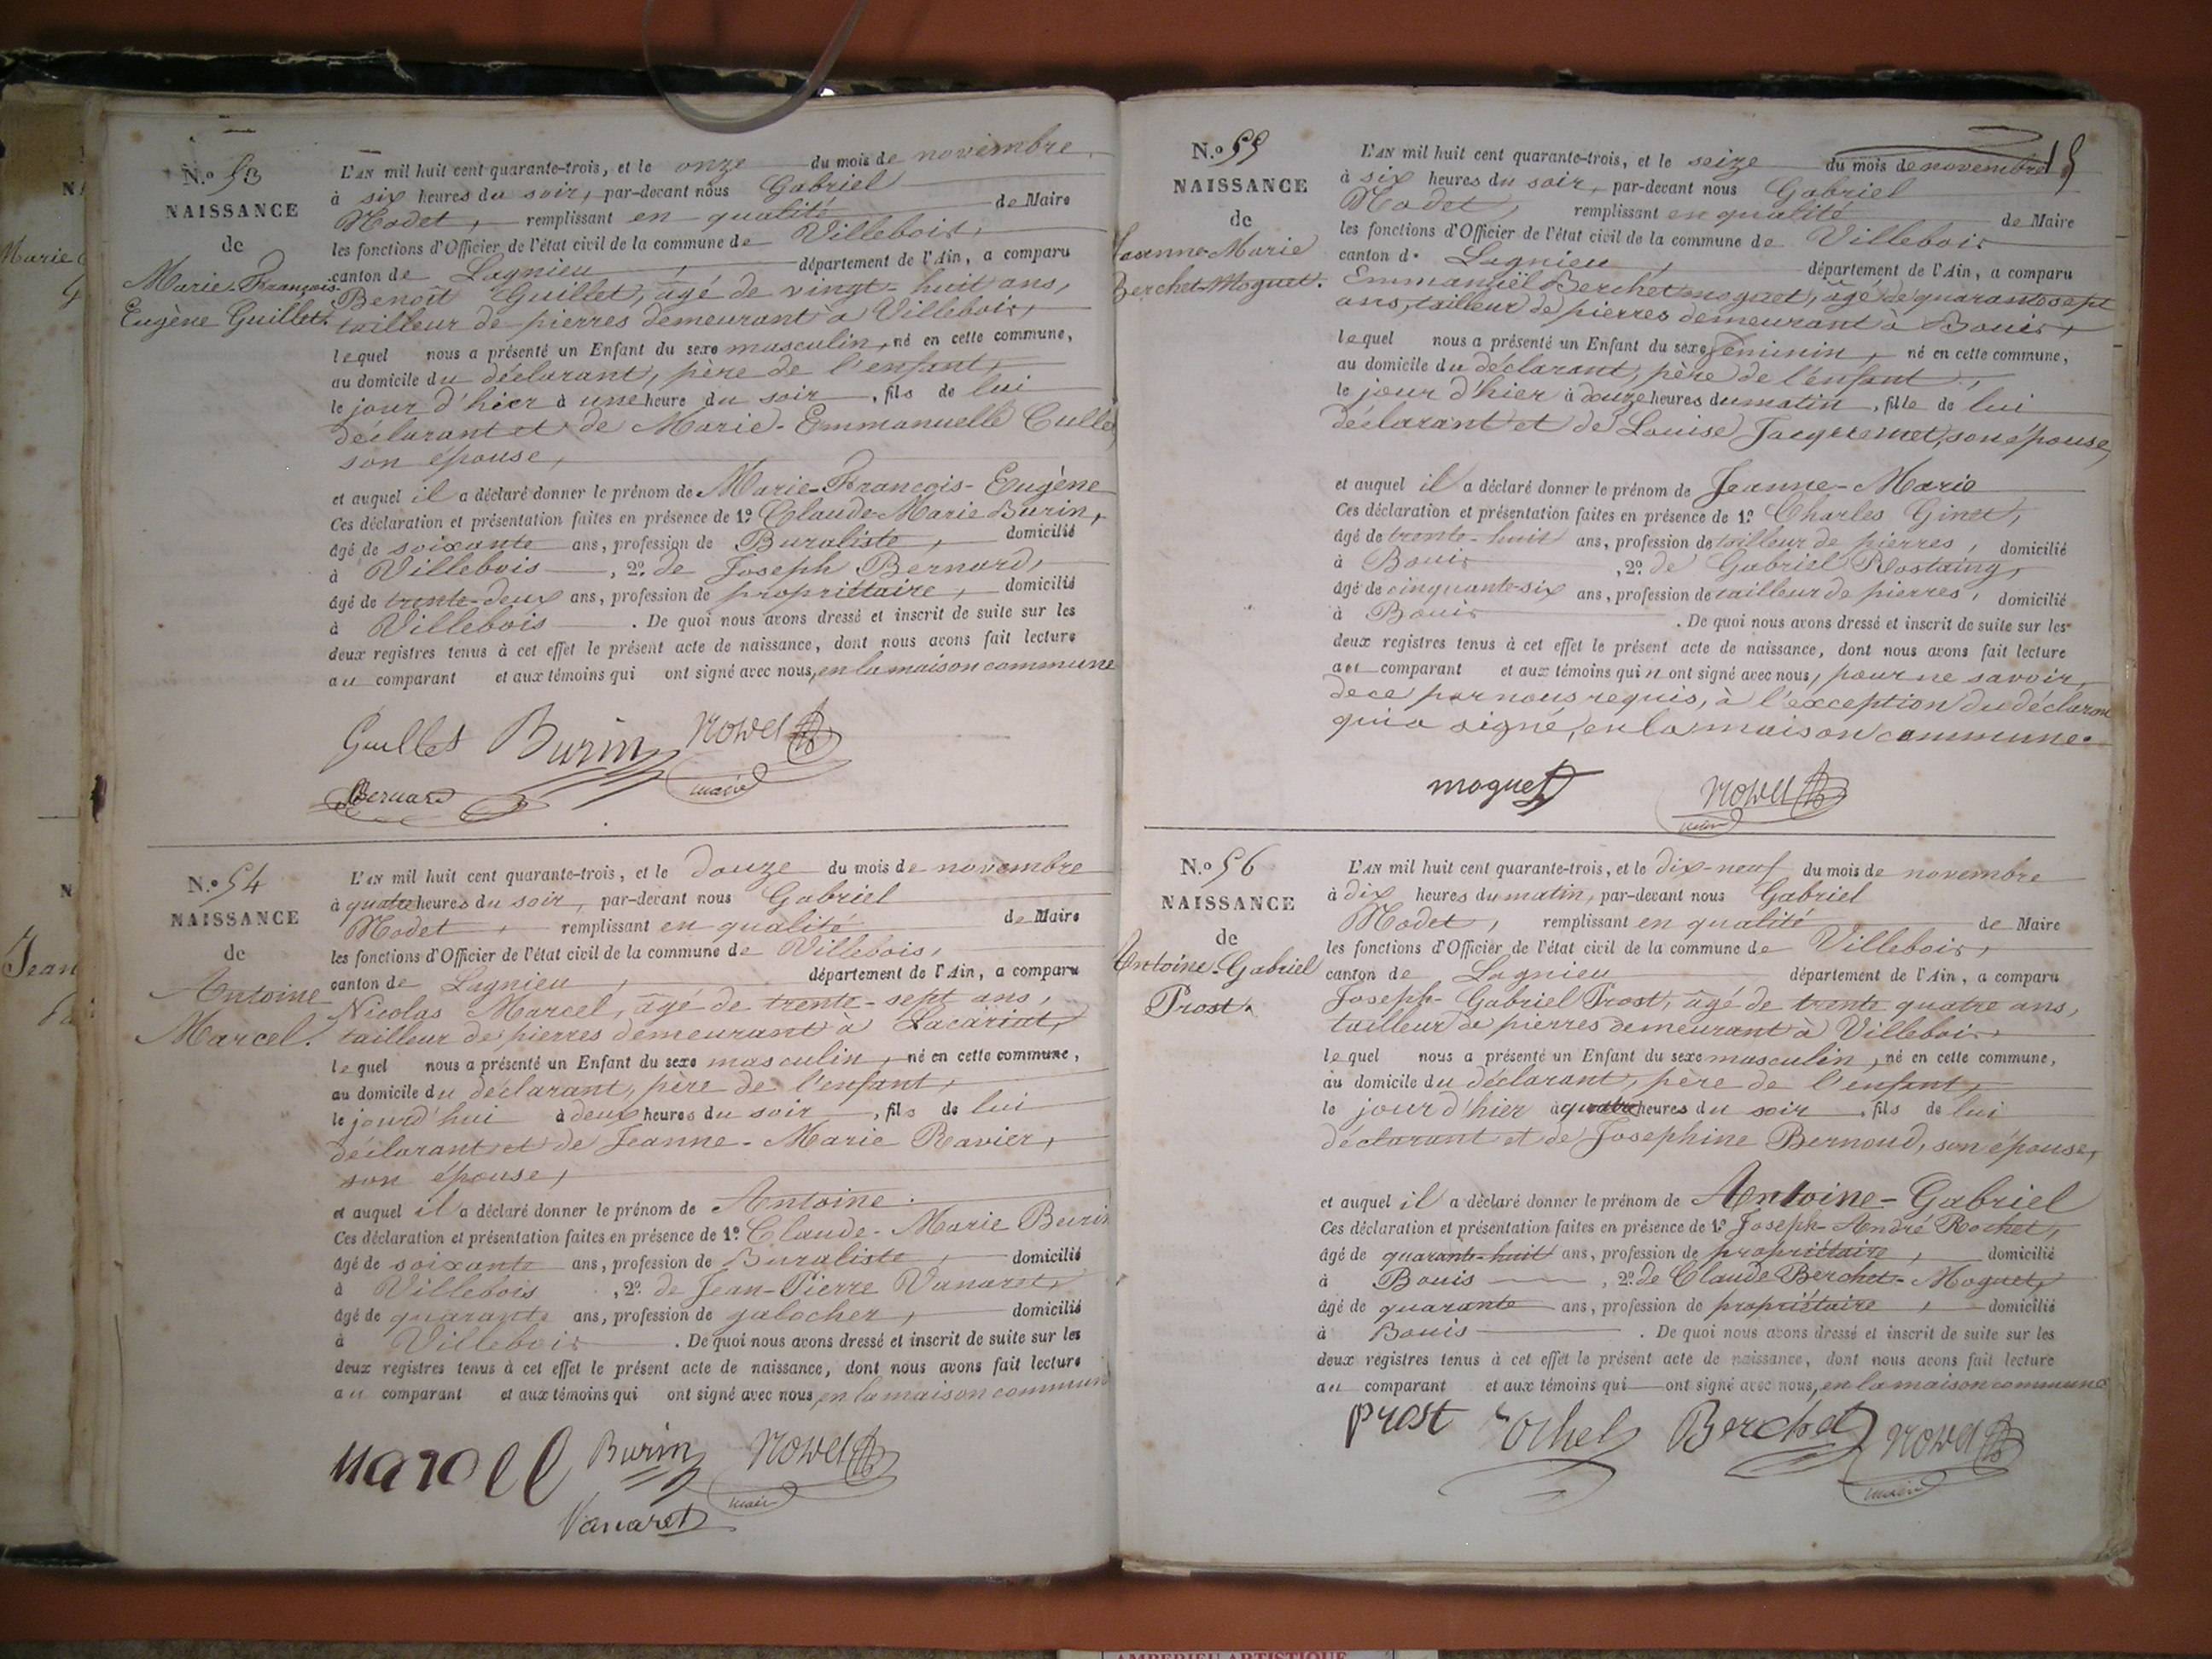 N.º 53
NAISSANCE
de
Marie-François-
Eugène Guillet.
L'AN mil huit cent quarante-trois, et le onze du mois de novembre
à six heures du soir, par-devant nous Gabriel
Nodet, remplissant en qualité de Maire
les fonctions d'Officier de l'état civil de la commune de Villebois,
canton de Lagnieu, département de l'Ain, a comparu
Benoît Guillet, âgé de vingt-huit ans,
tailleur de pierres demeurant à Villebois,
lequel nous a présenté un Enfant du sexe masculin, né en cette commune,
au domicile du déclarant, père de l'enfant,
le jour d'hier à une heure du soir, fils de lui
déclarant et de Marie-Emmanuelle Culle,
son épouse,
et auquel il a déclaré donner le prénom de Marie-François-Eugène
Ces déclaration et présentation faites en présence de 1º Claude-Marie Burin,
âgé de soixante ans, profession de Buraliste, domicilié
à Villebois, 2º de Joseph Bernard,
âgé de trente-deux ans, profession de propriétaire, domicilié
à Villebois. De quoi nous avons dressé et inscrit de suite sur les
deux registres tenus à cet effet le présent acte de naissance, dont nous avons fait lecture
au comparant et aux témoins qui ont signé avec nous, en la maison commune
Guillet Burin Nodet
Bernard maire
N.º 54
NAISSANCE
de
Antoine
Marcel.
L'AN mil huit cent quarante-trois, et le douze du mois de novembre
à quatre heures du soir, par-devant nous Gabriel
Nodet, remplissant en qualité de Maire
les fonctions d'Officier de l'état civil de la commune de Villebois,
canton de Lagnieu, département de l'Ain, a comparu
Nicolas Marcel, âgé de trente-sept ans,
tailleur de pierres demeurant à Lacariat,
lequel nous a présenté un Enfant du sexe masculin, né en cette commune,
au domicile du déclarant, père de l'enfant,
le jourd'hui à deux heures du soir, fils de lui
déclarant et de Jeanne-Marie Ravier,
son épouse,
et auquel il a déclaré donner le prénom de Antoine.
Ces déclaration et présentation faites en présence de 1º Claude-Marie Burin
âgé de soixante ans, profession de Buraliste, domicilié
à Villebois, 2º de Jean-Pierre Vanaret,
âgé de quarante ans, profession de galocher, domicilié
à Villebois. De quoi nous avons dressé et inscrit de suite sur les
deux registres tenus à cet effet le présent acte de naissance, dont nous avons fait lecture
au comparant et aux témoins qui ont signé avec nous, en la maison commune
Marcel Burin Nodet
Vanaret maire
15
N.º 55
NAISSANCE
de
Jeanne-Marie
Berchet-Moguet.
L'AN mil huit cent quarante-trois, et le seize du mois de novembre
à six heures du soir, par-devant nous Gabriel
Nodet, remplissant en qualité de Maire
les fonctions d'Officier de l'état civil de la commune de Villebois
canton d. Lagnieu, département de l'Ain, a comparu
Emmanuël Berchet moguet, âgé de quarante sept
ans, tailleur de pierres demeurant à Bouis,
lequel nous a présenté un Enfant du sexe féminin, né en cette commune,
au domicile du déclarant, père de l'enfant,
le jour d'hier à onze heures du matin, fille de lui
déclarant et de Louise Jacquemet, son épouse,
et auquel il a déclaré donner le prénom de Jeanne-Marie
Ces déclaration et présentation faites en présence de 1º Charles Ginet,
âgé de trente-huit ans, profession de tailleur de pierres, domicilié
à Bouis, 2º de Gabriel Rostaing,
âgé de cinquante-six ans, profession de tailleur de pierres, domicilié
à Bouis. De quoi nous avons dressé et inscrit de suite sur les
deux registres tenus à cet effet le présent acte de naissance, dont nous avons fait lecture
au comparant et aux témoins qui n'ont signé avec nous, pour ne savoir,
de ce par nous requis, à l'exception du déclarant
qui a signé, en la maison commune.
moguet Nodet
maire
N.º 56
NAISSANCE
de
Antoine-Gabriel
Prost.
L'AN mil huit cent quarante-trois, et le dix-neuf du mois de novembre
à dix heures du matin, par-devant nous Gabriel
Nodet, remplissant en qualité de Maire
les fonctions d'Officier de l'état civil de la commune de Villebois,
canton de Lagnieu département de l'Ain, a comparu
Joseph-Gabriel Prost, âgé de trente quatre ans,
tailleur de pierres demeurant à Villebois,
lequel nous a présenté un Enfant du sexe masculin, né en cette commune,
au domicile du déclarant, père de l'enfant,
le jour d'hier à quatre heures du soir, fils de lui
déclarant et de Josephine Bernoud, son épouse,
et auquel il a déclaré donner le prénom de Antoine-Gabriel
Ces déclaration et présentation faites en présence de 1º Joseph-André Rochet,
âgé de quarante-huit ans, profession de propriétaire, domicilié
à Bouis, 2º de Claude Berchet-Moguet,
âgé de quarante ans, profession de propriétaire, domicilié
à Bouis. De quoi nous avons dressé et inscrit de suite sur les
deux registres tenus à cet effet le présent acte de naissance, dont nous avons fait lecture
au comparant et aux témoins qui ont signé avec nous, en la maison commune
Prost Rochet Berchet Nodet
maire
AMBERIEU ARTISTIQUE